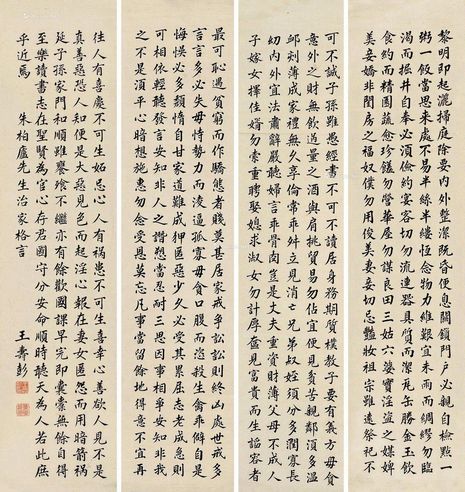 黎明即起灑掃庭除要內外整潔既昏便息關鎖門戶必親自檢點一
粥一飯當思來處不易半絲半縷恆念物力維艱宜未雨而綢繆勿臨
渴而掘井自奉必須儉約宴客切勿流連器具質而潔瓦缶勝金玉飲
食約而精園蔬愈珍饈勿營華屋勿謀良田三姑六婆實淫盜之媒婢
美妾嬌非閨房之福奴僕勿用俊美妻妾切忌豔妝祖宗雖遠祭祀不
可不誠子孫雖愚經書不可不讀居身務期質樸教子要有義方毋貪
意外之財無飲過量之酒與肩挑貿易勿佔便宜見貧苦親鄰須多溫
卹刻薄成家理無久享倫常乖舛立見消亡兄弟叔姪須分多潤寡長
幼內外宜法肅辭嚴聽婦言乖骨肉豈是丈夫重資財薄父母不成人
子嫁女擇佳婿勿索重聘娶媳求淑女勿計厚奩見富貴而生諂容者
最可恥遇貧窮而作驕態者賤莫甚居家戒爭訟訟則終凶處世戒多
言言多必失毋恃勢力而凌逼孤寡毋貪口腹而恣殺生禽乖僻自是
悔悞必多頹惰自甘家道難成狎匿惡少久必受其累屈志老成急則
可相依輕聽發言安知非人之譖愬當忍耐三思因事相爭安知非我
之不是須平心暗想施惠勿念受恩莫忘凡事當留餘地得意不宜再
往人有喜慶不可生妒忌心人有禍患不可生喜幸心善欲人見不是
真善惡恐人知便是大惡見色而起淫心報在妻女匿怨而用暗箭禍
延子孫家門和順雖饔飧不繼亦有餘歡國課早完即囊橐無餘自得
至樂讀書志在聖賢為官心存君國守分安命順時聽天為人若此庶
乎近焉 朱柏廬先生治家格言
王壽彭